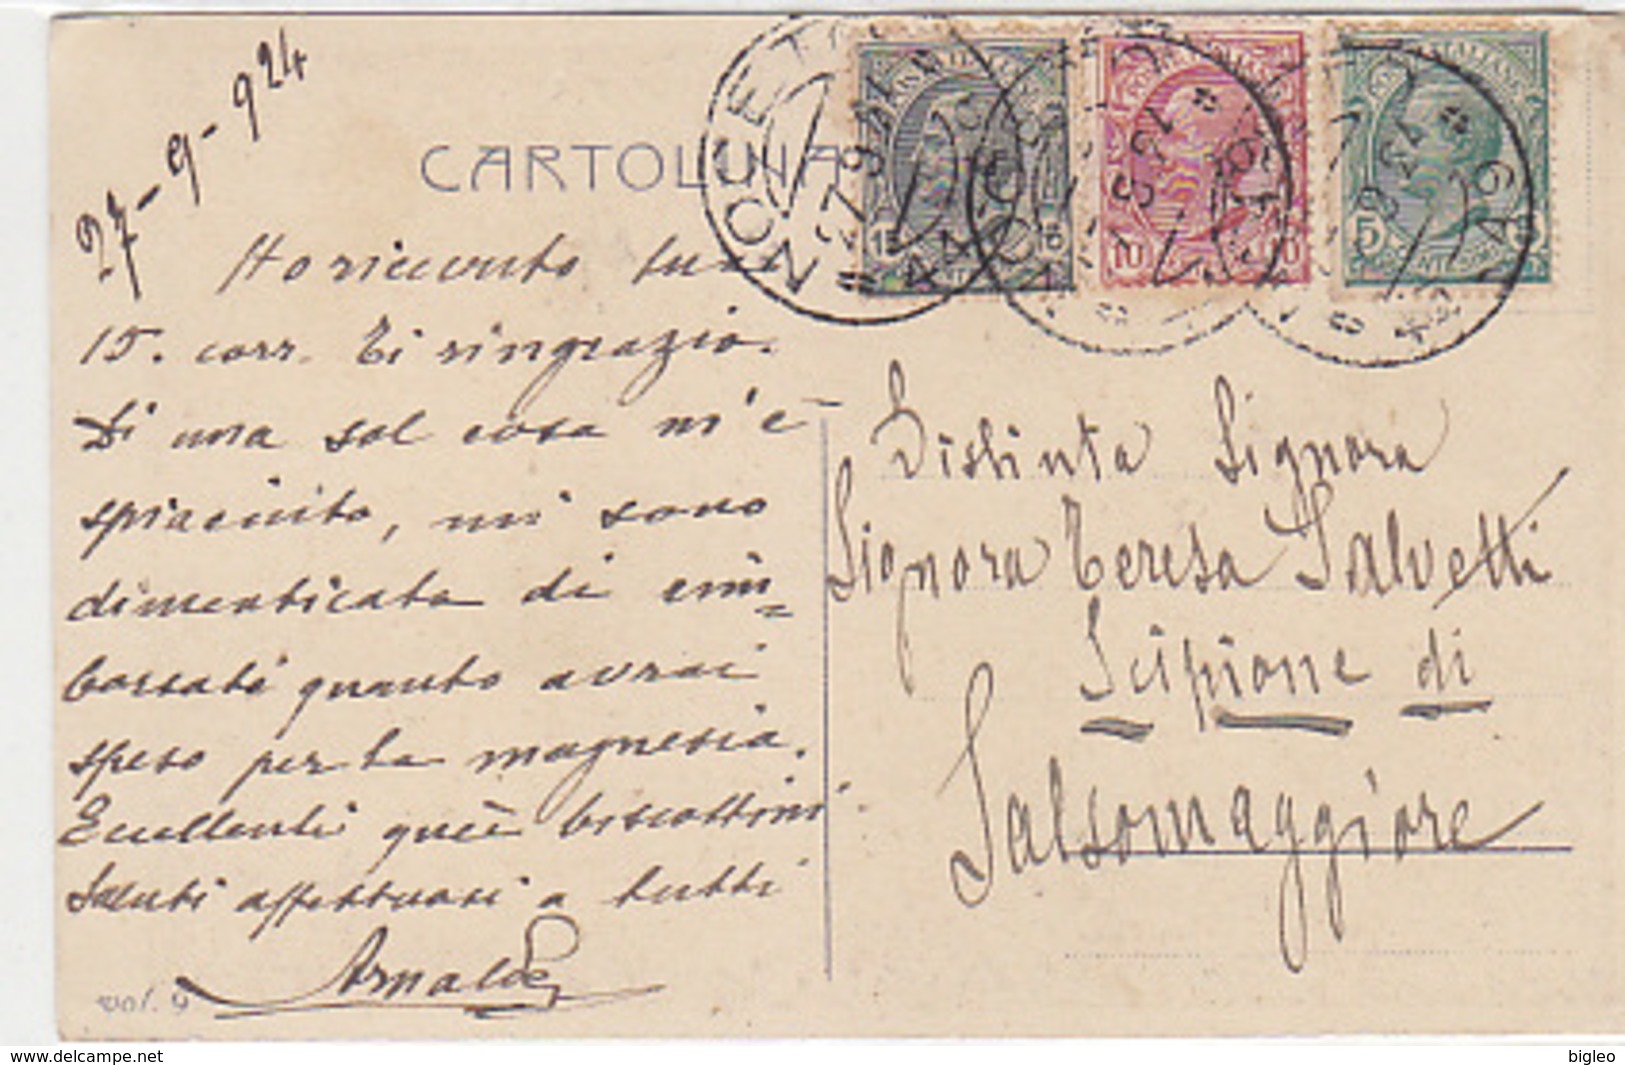 27-9-924
CARTOLINA
NOCETO
27.9.24
15
10 10
5
Ho ricevuto tua
15. corr. Ti ringrazio.
Di una sol cosa m'è
spiaciuto, mi sono
dimenticata di rim=
borsarti quanto avrai
speso per la magnesia.
Eccellenti quei biscottini.
Saluti affettuosi a tutti
Arnaldo
Distinta Signora
Signora Teresa Salvetti
Scipione di
Salsomaggiore
vol. 9
www.delcampe.net
bigleo